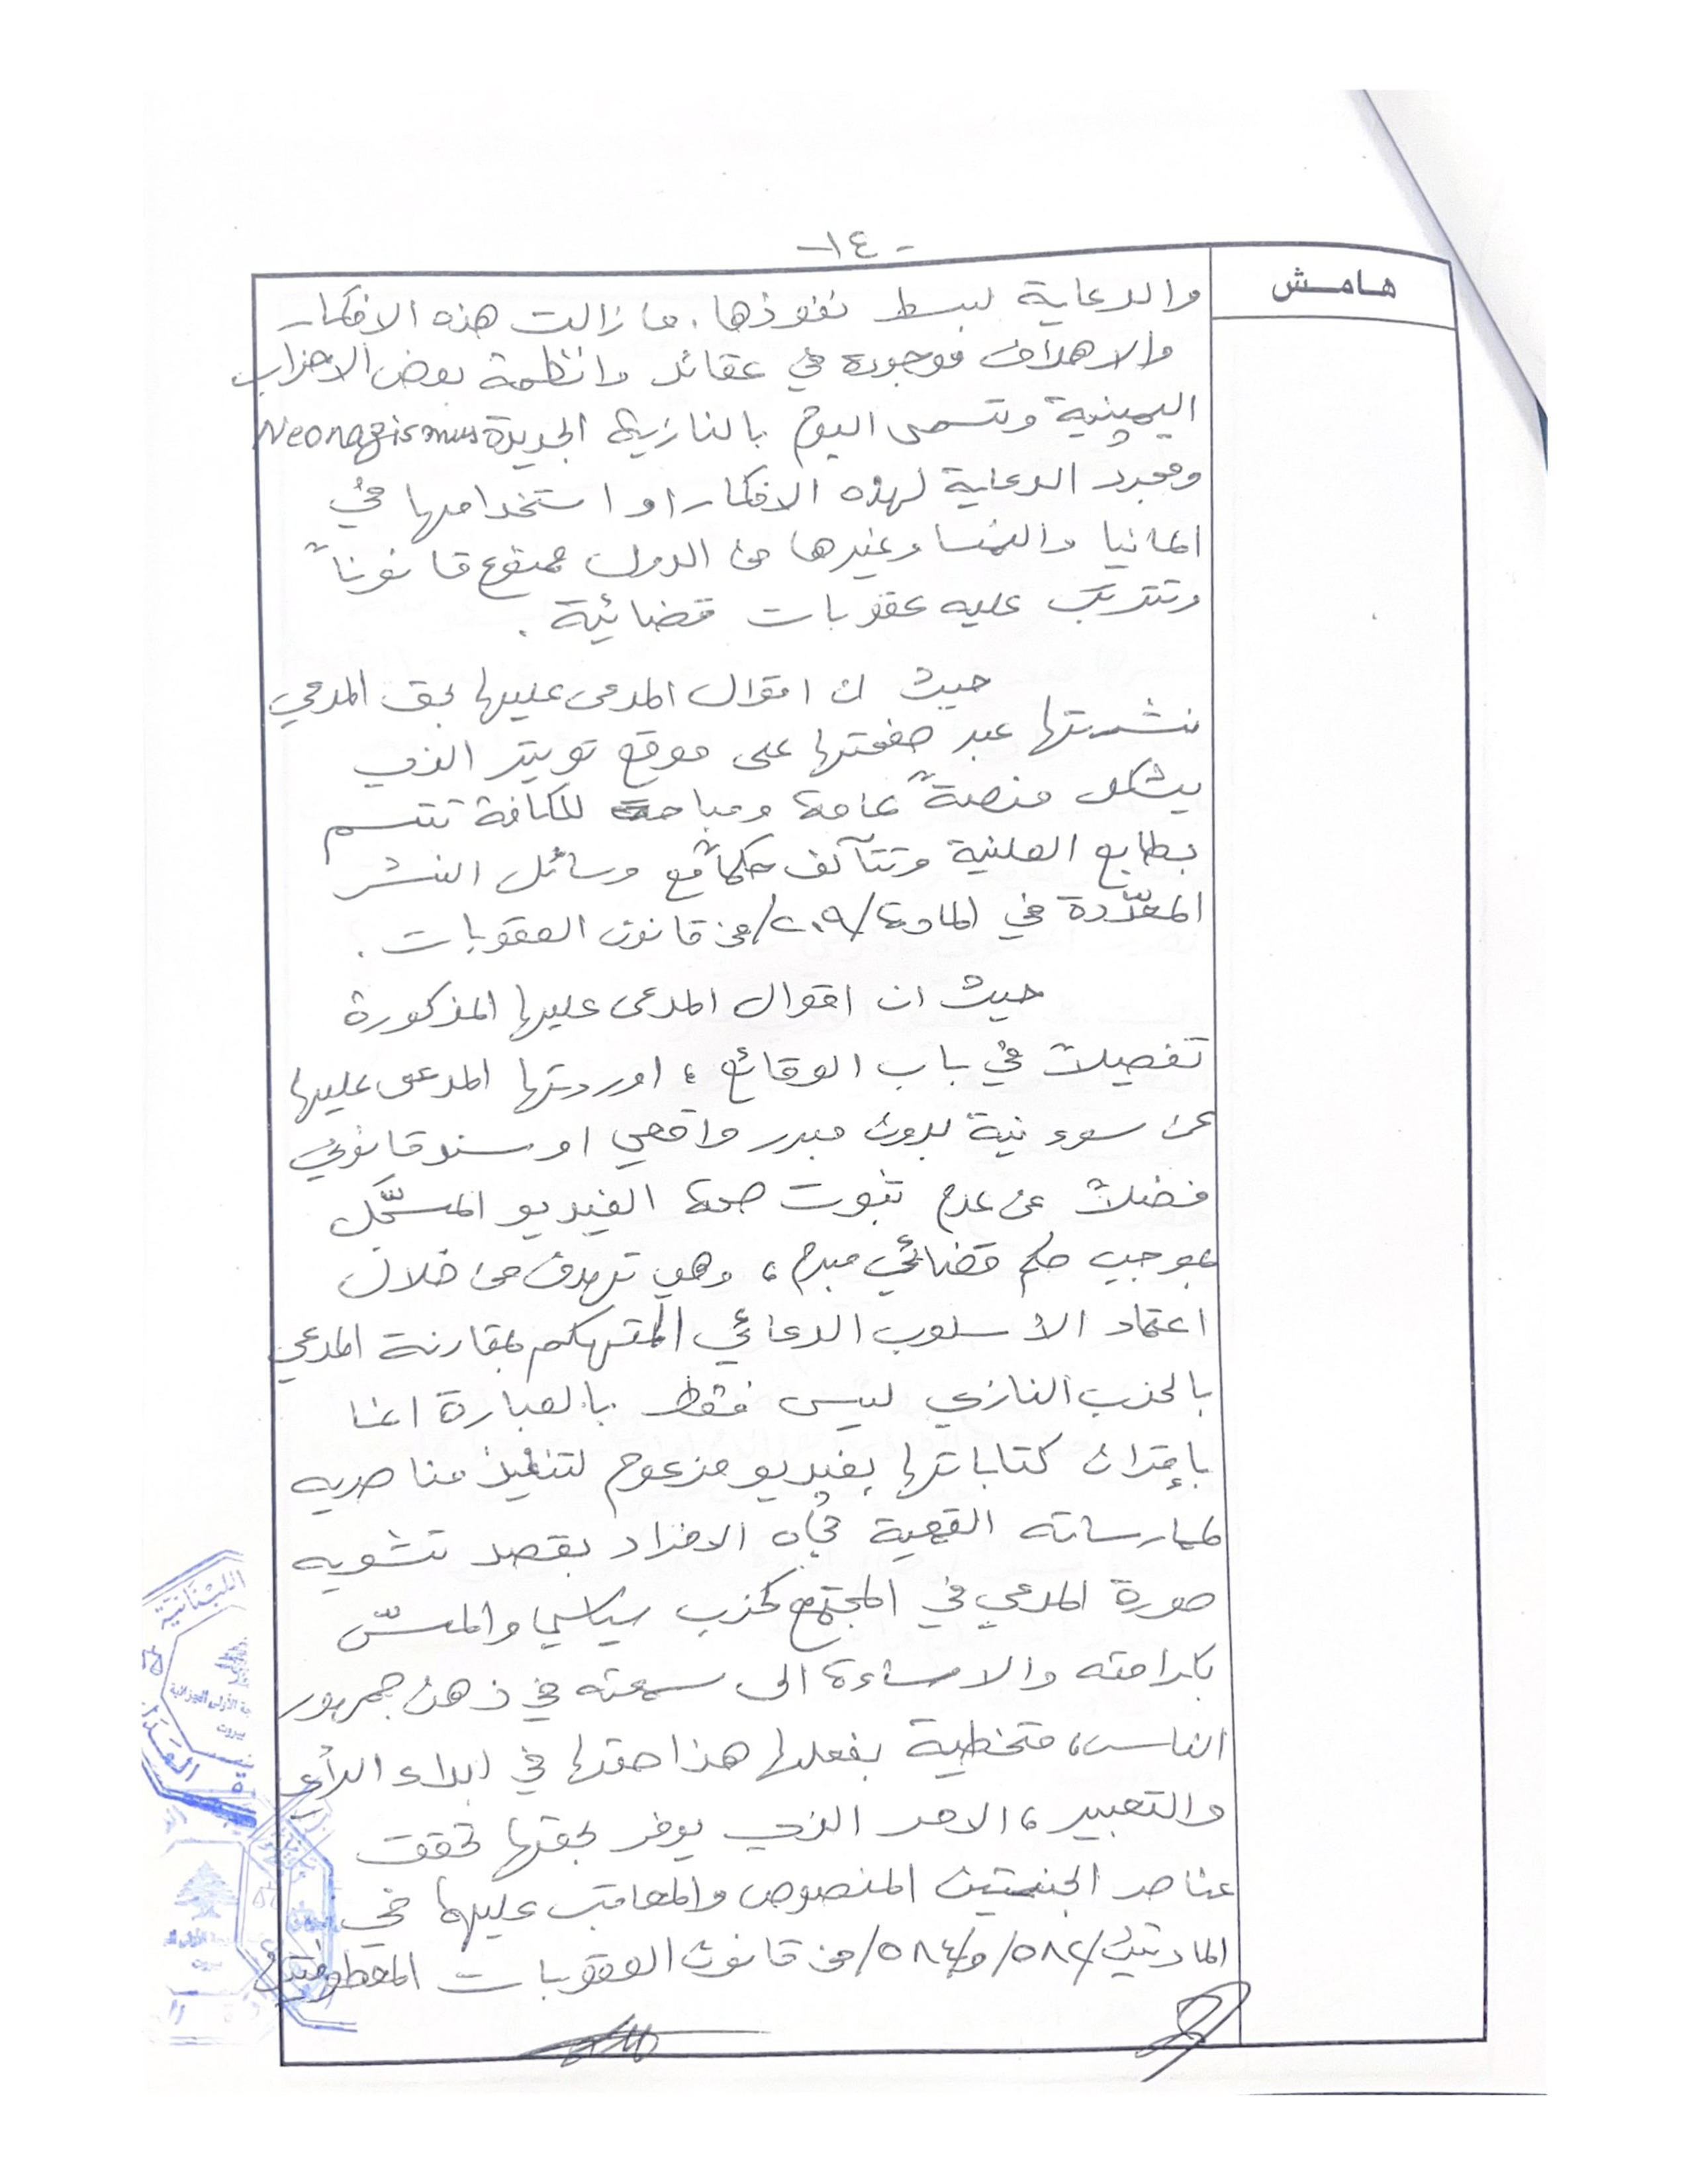 -١٤-
هامش
والدعاية لبسط نفوذها. ما زالت هذه الافكار
والاهداف موجودة في عقائد وانظمة بعض الاحزاب
اليمينية وتسمى اليوم بالنازية الجديدة Neonazismus
ومجرد الدعاية لهذه الافكار او استخدامها في
المانيا والنمسا وغيرها من الدول ممنوع قانوناً
وتترتب عليه عقوبات قضائية.
حيث ان اقوال المدعى عليها بحق المدعي
نشرتها عبر صفحتها على موقع تويتر الذي
يشكل منصةً عامة ومباحة للكافة تتسم
بطابع العلنية وتتآلف حكماً مع وسائل النشر
المعدّدة في المادة /٢٠٩/ من قانون العقوبات.
حيث ان اقوال المدعى عليها المذكورة
تفصيلاً في باب الوقائع، اوردتها المدعى عليها
عن سوء نية بدون مبرر واقعي او سند قانوني
فضلاً عن عدم ثبوت صحة الفيديو المسجّل
بموجب حكم قضائي مبرم، وهي تهدف من خلال
اعتماد الاسلوب الدعائي المتهكم بمقارنة المدعي
بالحزب النازي ليس فقط بالعبارة انما
بإقتران كتاباتها بفيديو مزعوم لتنفيذ مناصريه
لممارساته القمعية تجاه الافراد بقصد تشويه
صورة المدعي في المجتمع كحزب سياسي والمسّ
بكرامته والاساءة الى سمعته في ذهن جمهور
الناس، متخطية بفعلها هذا حقها في ابداء الرأي
والتعبير، الامر الذي يوفر بحقها تحقق
عناصر الجنحتين المنصوص والمعاقب عليهما في
المادتين /٥٨٢/ و/٥٨٤/ من قانون العقوبات المعطوفتين
اللبنانية
العدل
بيروت